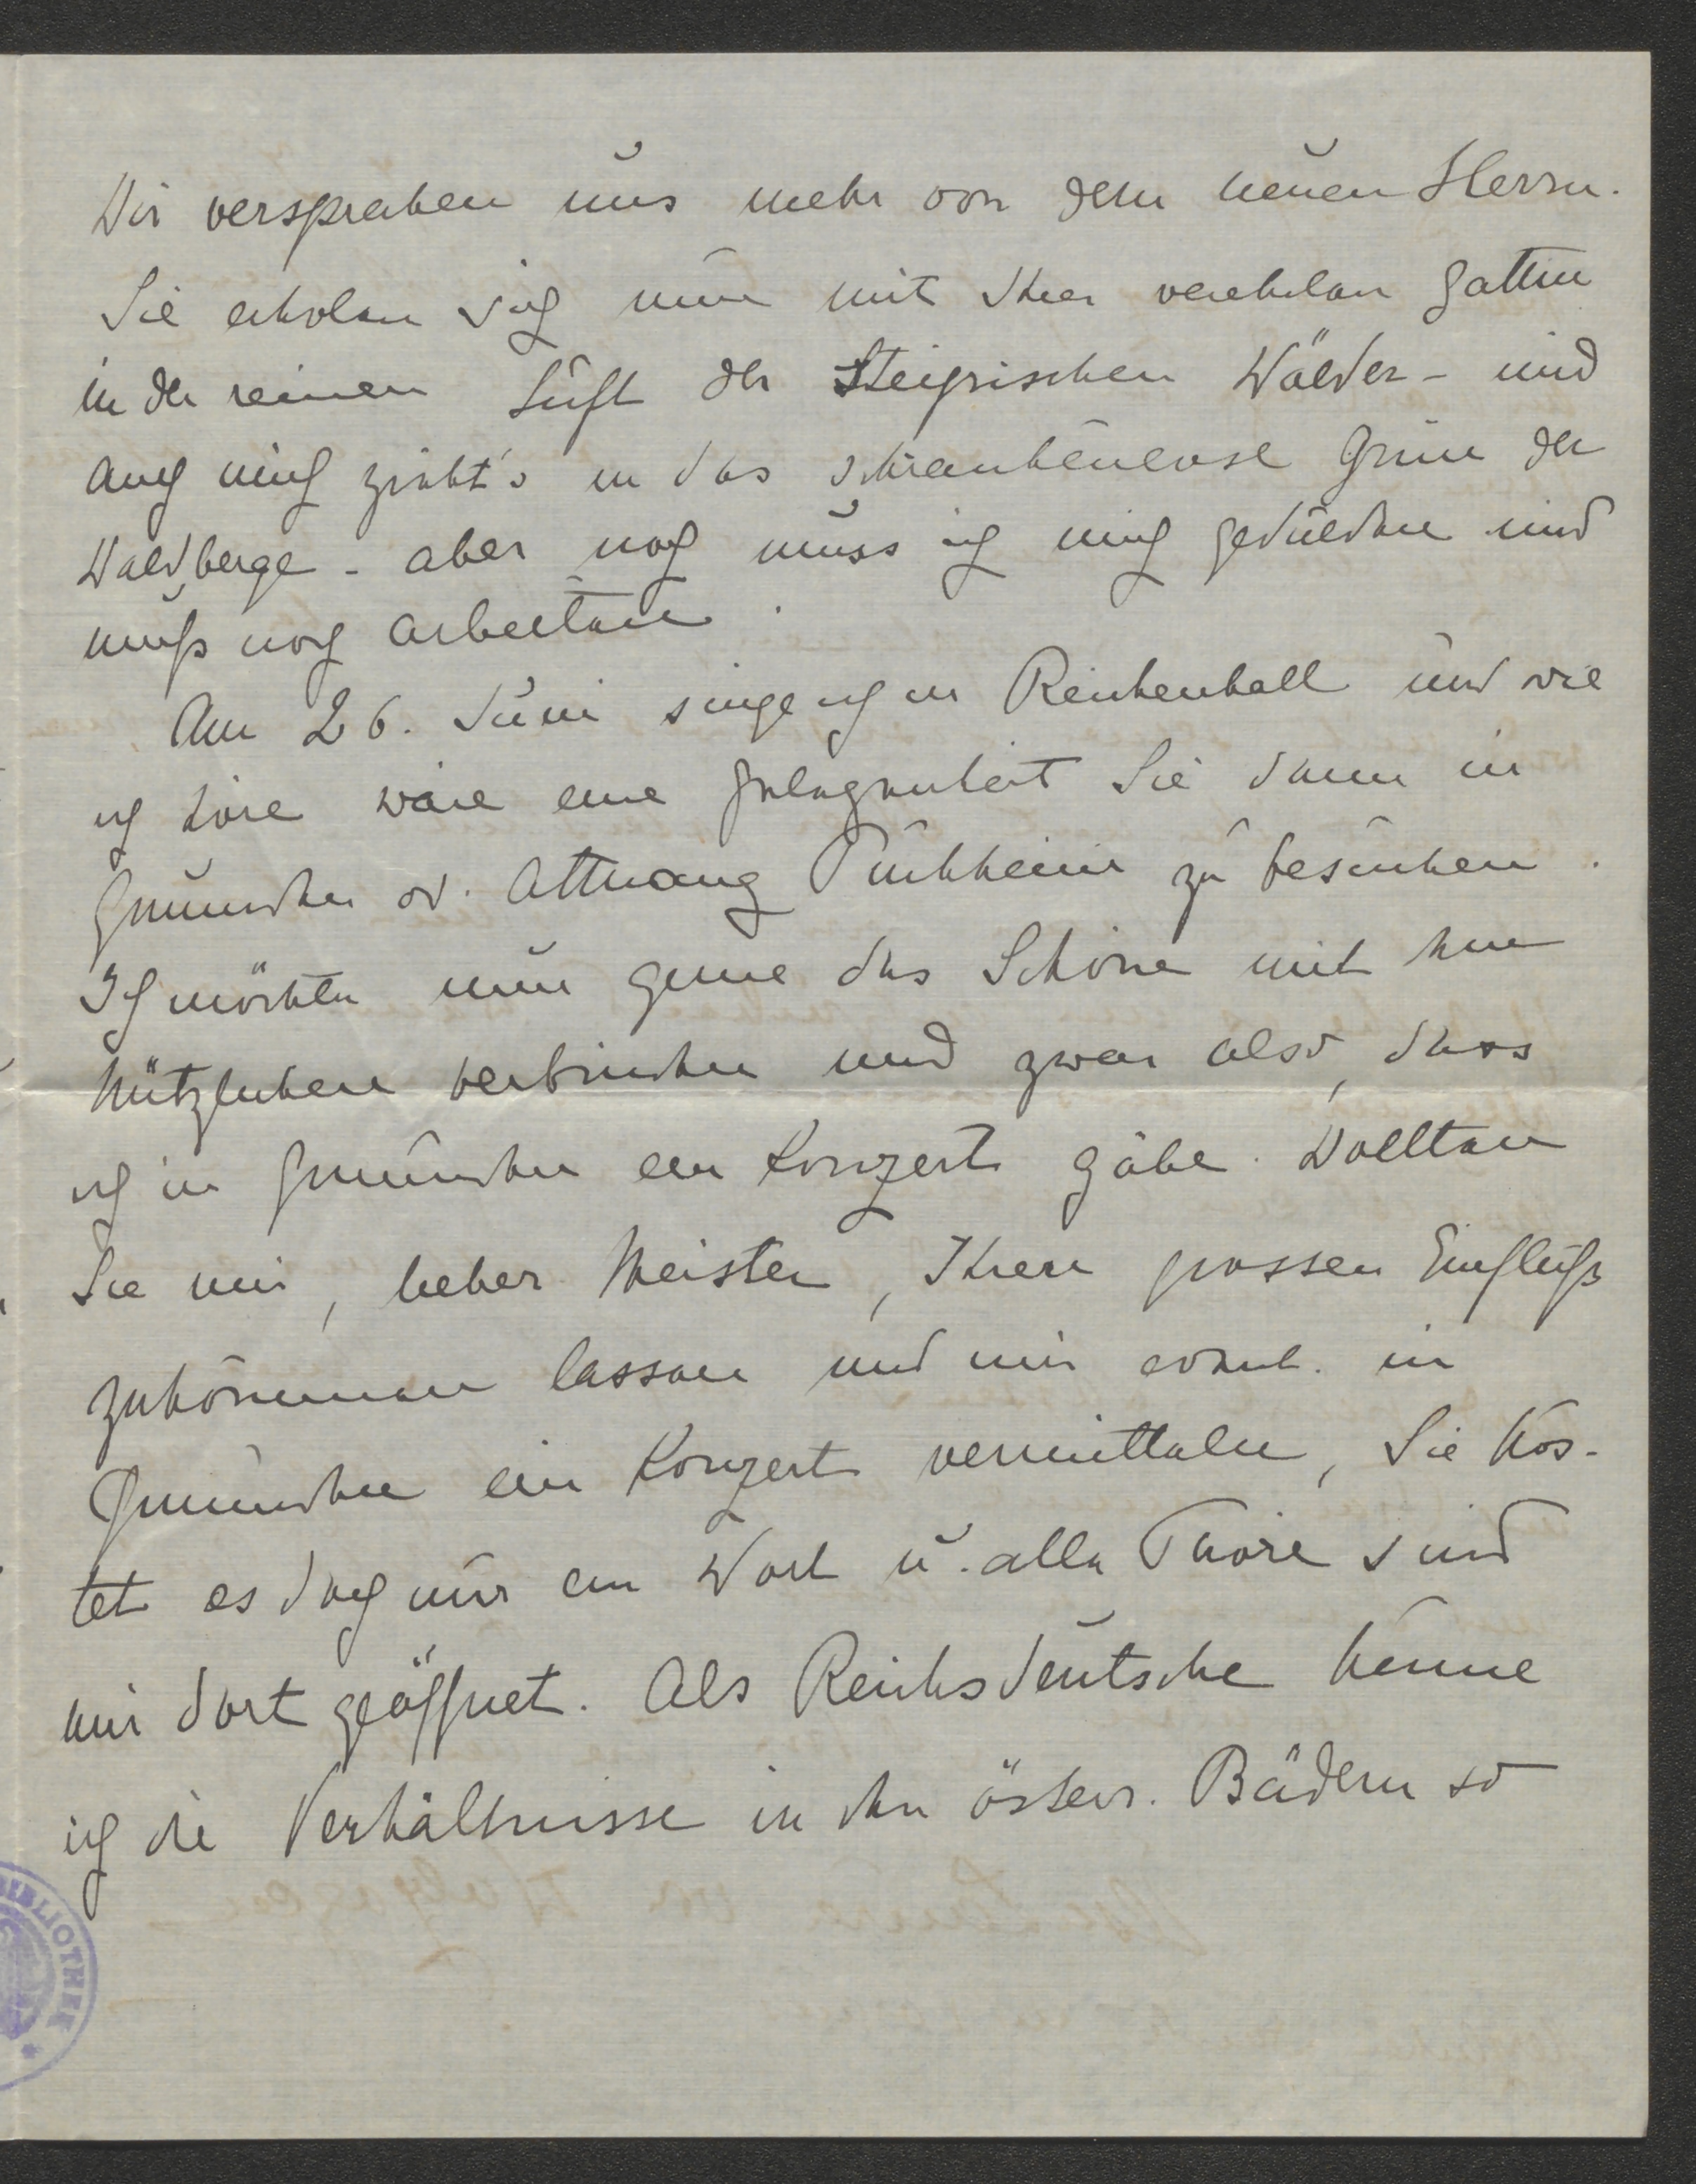 Wir versprachen uns mehr von dem neuen Herrn.
Sie erholen sich nun mit Ihrer verehrten Gattin
in der reinen Luft der Steyrischen Wälder - und
auch mich zieht's in das schrankenlose Grün der
Waldberge - aber noch muss ich mich gedulden und
muß noch arbeiten.
Am 26. Juni singe ich in Reichenhall und wie
ich höre wäre eine Gelegenheit Sie dann in
Gmunden od. Attnang Puchheim zu besuchen.
Ich möchte nun gerne das Schöne mit dem
Nützlichen verbinden und zwar also, dass
ich in Gmunden ein Konzert gäbe. Wollten
Sie mir, lieber Meister, Ihren grossen Einfluß
zukommen lassen und mir event. in
Gmunden ein Konzert vermitteln, Sie kos-
tet es doch nur ein Wort u. alle Thore sind
mir dort geöffnet. Als Reichsdeutsche kenne
ich die Verhältnisse in den österr. Bädern so
BIBLIOTHEK